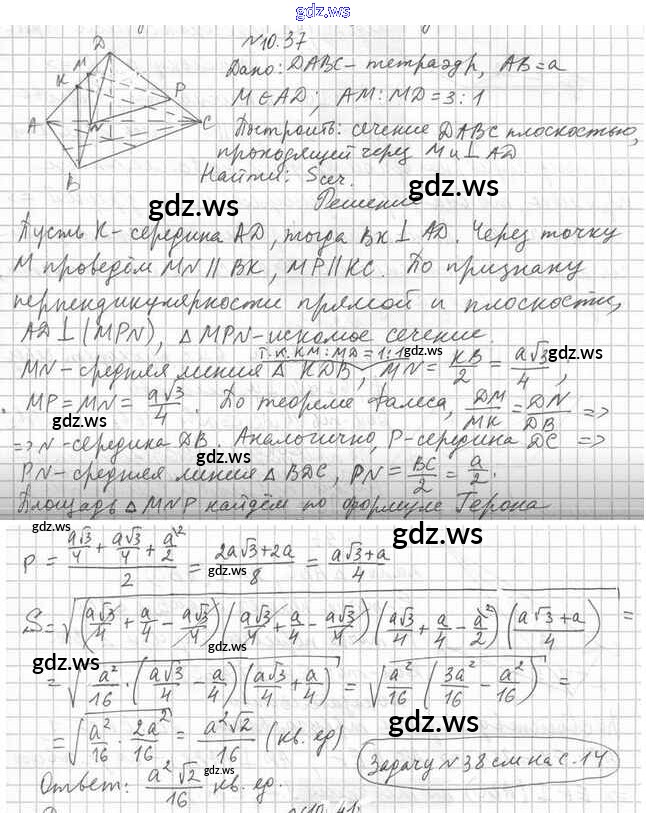 gdz.ws
№10.37
Дано: DABC - тетраэдр, AB=a
M∈AD; AM:MD=3:1
Построить: сечение DABC плоскостью,
проходящей через M и ⊥ AD
Найти: Sсеч.
gdz.ws gdz.ws
Решение
Пусть K - середина AD, тогда BK ⊥ AD. Через точку
M проведём MN || BK, MP || KC. По признаку
gdz.ws gdz.ws
перпендикулярности прямой и плоскости,
AD ⊥ (MPN), △MPN - искомое сечение.
т.к. KM:MD=1:1 gdz.ws gdz.ws
MN - средняя линия △ KDB, MN = KB/2 = a√3/4;
MP = MN = a√3/4. По теореме Фалеса, DM/MK = DN/DB =>
gdz.ws
=> N - середина DB. Аналогично, P - середина DC =>
gdz.ws
PN - средняя линия △ BDC, PN = BC/2 = a/2.
Площадь △ MNP найдём по формуле Герона
gdz.ws gdz.ws
p = (a√3/4 + a√3/4 + a/2)/2 = (2a√3+2a)/8 = (a√3+a)/4
gdz.ws
S = √((a√3/4 + a/4 - a√3/4)(a√3/4 + a/4 - a√3/4)(a√3/4 + a/4 - a/2)((a√3+a)/4)) =
gdz.ws
= √(a²/16 · (a√3/4 - a/4)(a√3/4 + a/4)) = √(a²/16 (3a²/16 - a²/16)) =
gdz.ws
= √(a²/16 · 2a²/16) = a²√2/16 (кв. ед)
Задачу №38 см на с. 14
gdz.ws
Ответ: a²√2/16 кв. ед.
gdz.ws
№10.41.
D
M
K
P
A
N
C
B